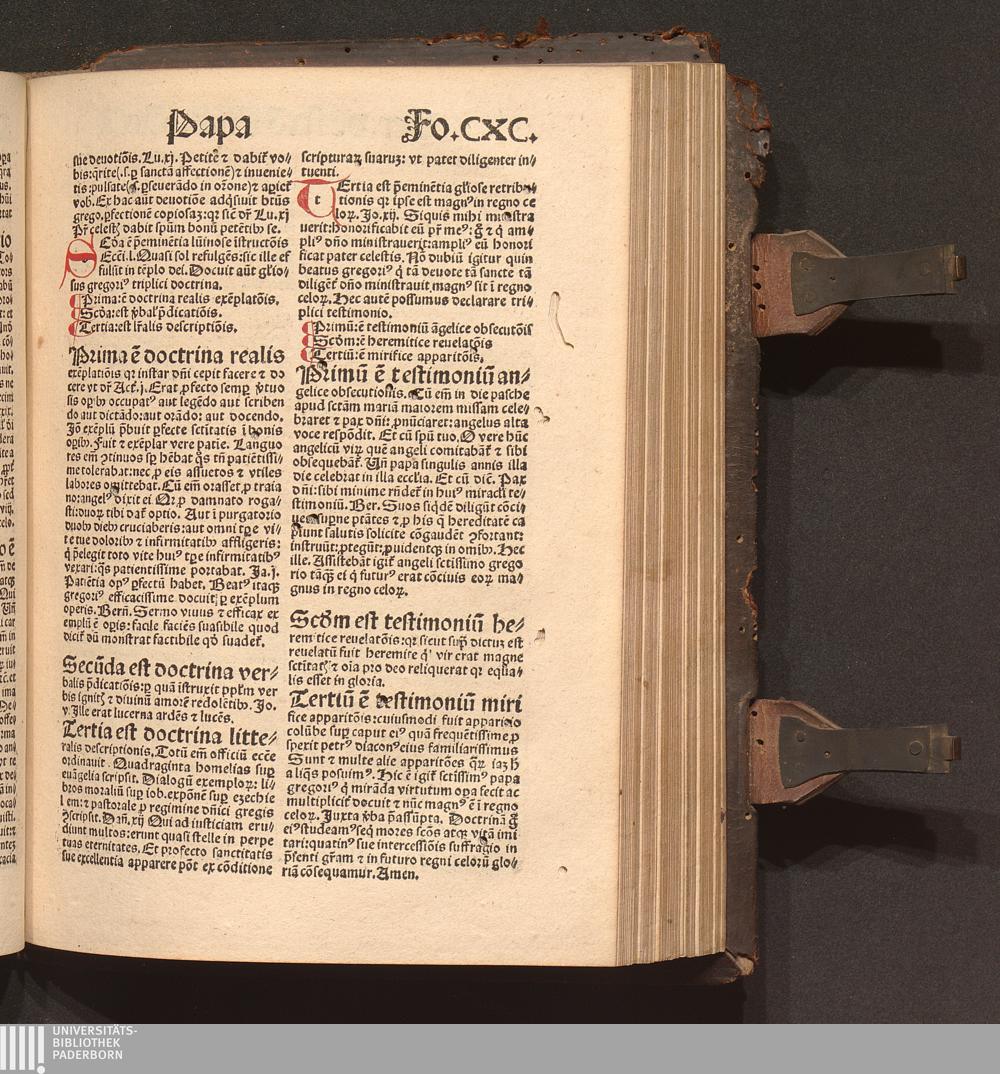 Papa
Fo.CXC.
sue deuotiōis. Lu.xj. Petite ⁊ dabit᷑ vo/
bis: q̄rite (.s. ꝑ sanctā affectionē) ⁊ inuenie/
tis: pulsate (.s. ꝑseuerādo in or̄one) ⁊ apiet᷑
vob. Ex hac aūt deuotiōe adq̄siuit btūs
grego. ꝑfectionē copiosaꝫ: qꝛ sic̄ dr̄ Lu.xj
Pr̄ celestꝭ dabit spūm bonū petētibꝰ se.
SEcōa ē p̄eminētia lūinose īstructōis
Ecci.l. Quasi sol refulgēs: sic ille ef
fulsit in tēplo dei. Docuit aūt gl̄io/
sus gregoriꝰ triplici doctrina.
Prima: ē doctrina realis exēplatōis.
Scōa: est v̄balꝭ p̄dicatiōis.
Tertia: est lr̄alis descriptiōis.
Prima ē doctrina realis
exēplatiōis qꝛ instar dn̄i cepit facere ⁊ do
cere vt dr̄ Act.j. Erat ꝓfecto semꝑ v̓tuo
sis oꝑibꝰ occupatꝰ aut legēdo aut scriben
do aut dictādo: aut orādo: aut docendo.
Jō exēplū p̄buit ꝑfecte sctītatis ī bonis
oꝑibꝰ. Fuit ⁊ exēplar vere patiē. Languo
res em̄ ꝯtinuos sꝑ hēbat q̄s tn̄ patiētissi/
me tolerabat: nec ꝓ eis assuetos ⁊ vtiles
labores omittebat. Cū em̄ orasset ꝓ traia
no: angelꝰ dixit ei. Qꝛ ꝓ damnato roga/
sti: duoꝝ tibi dat᷑ optio. Aut ī purgatorio
duobꝰ diebꝰ cruciaberis: aut omni tp̄e vi/
te tue doloribꝰ ⁊ infirmitatibꝰ affligeris:
q̄ p̄elegit toto vite huiꝰ tp̄e infirmitatibꝰ
vexari: q̄s patientissime portabat. Ja.j.
Patiētia opꝰ ꝑfectū habet. Beatꝰ itaqꝫ
gregoriꝰ efficacissime docuit ꝑ exēplum
operis. Bern̄. Sermo viuus ⁊ efficax ex
emplū ē oꝑis: facile faciēs suasibile quod
dicit᷑ dū monstrat factibile qḋ suadet᷑.
Secūda est doctrina ver/
balis p̄dicatiōis: ꝑ quā īstruxit pp̄lm ver
bis ignitꝭ ⁊ diuinū amorē redolētibꝰ. Jo.
v. Ille erat lucerna ardēs ⁊ lucēs.
Tertia est doctrina litte/
ralis descriptionis. Totū em̄ officiū ecc̄e
ordinauit. Quadraginta homelias suꝑ
euāgelia scripsit. Dialogū exemploꝝ: li/
bros moraliū suꝑ iob. exponē suꝑ ezechie
lem: ⁊ pastorale ꝓ regimine dn̄ici gregis
ꝯscripsit. Dan̄.xij Qui ad iusticiam eru/
diunt multos: erunt quasi stelle in perpe
tuas eternitates. Et profecto sanctitatis
sue excellentia apparere pōt ex cōditione
scripturaꝝ suaruꝫ: vt patet diligenter in/
tuenti.
TErtia est p̄eminētia gl̄iose retribu/
tionis qꝛ ip̄se est magnꝰ in regno ce
loꝝ. Jo.xij. Siquis mihi ministra
uerit: honorificabit eū pr̄ meꝰ: g̊ ⁊ q̇ am/
pliꝰ dn̄o ministrauerit: ampliꝰ eū honori
ficat pater celestis. Nō dubiū igitur quin
beatus gregoriꝰ q̇ tā deuote tā sancte tā
diligēt᷑ dn̄o ministrauit magnꝰ sit ī regno
celoꝝ. Hec autē possumus declarare tri/
plici testimonio.
Primū: ē testimoniū āgelice obsecutōis
Scḋm: ē heremitice reuelatōis
Tertiū: ē mirifice apparitōis.
Primū ē testimoniū an/
gelice obsecutionis. Cū em̄ in die pasche
apud sctām mariā maiorem missam cele/
braret ⁊ pax dn̄i: ꝓnūciaret: angelus alta
voce respōdit. Et cū spū tuo. O vere hūc
angelicū viꝝ quē angeli comitabāt᷑ ⁊ sibi
obsequebāt᷑. Vn̄ papa singulis annis illa
die celebrat in illa ecclīa. Et cū dic̄. Pax
dn̄i: sibi minime rn̄det᷑ in huiꝰ miracl̓i te/
stimoniū. Ber. Suos siqdē diligūt cōci/
ues suꝑne ptātes ⁊ ꝓ his q̇ hereditatē ca
piunt salutis solicite cōgaudēt ꝯfortant:
instruūt: ꝓtegūt: ꝓuidentqꝫ in omībꝰ. Hec
ille. Assistebāt igit᷑ angeli sctissimo grego
rio tāqꝫ ei q̇ futurꝰ erat cōciuis eoꝝ ma/
gnus in regno celoꝝ.
Scḋm est testimoniū he/
remitice reuelatōis: qꝛ sicut suꝑ dictuꝫ est
reuelatū fuit heremite qd̓ vir erat magne
sctītatꝭ ⁊ oīa pro deo reliquerat qꝛ equa/
lis esset in gloria.
Tertiū ē testimoniū miri
fice apparitōis: cuiusmodi fuit apparicio
colūbe suꝑ caput eiꝰ quā frequētissime ꝓ
spexit petrꝰ diaconꝰ eius familiarissimus
Sunt ⁊ multe alie apparitōes q̄ꝝ iaꝫ h̄
aliq̄s posuimꝰ. Hic ē igit᷑ sctissimꝰ papa
gregoriꝰ q̇ mirāda virtutum oꝑa fecit ac
multiplicit᷑ docuit ⁊ nūc magnꝰ ē ī regno
celoꝝ. Juxta v̓ba p̄assūpta. Doctrinā g̊
eiꝰ studeamꝰ seq̇ mores scōs atqꝫ vitā imi
tari: quatinꝰ sue intercessiōis suffragio in
p̄senti gr̄am ⁊ in futuro regni celorū glo/
riā cōsequamur. Amen.
UNIVERSITÄTS-
BIBLIOTHEK
PADERBORN